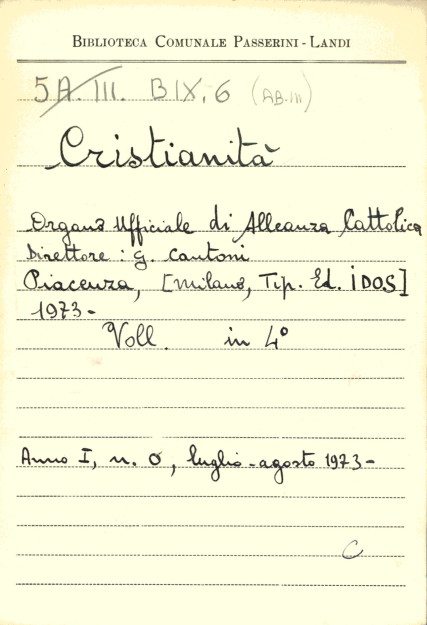 BIBLIOTECA COMUNALE PASSERINI - LANDI
5A. III. B IX. 6 (AB.III)
Cristianità
Organo Ufficiale di Alleanza Cattolica
Direttore : G. Cantoni
Piacenza, [Milano, Tip. Ed. IDOS]
1973-
Voll. in 4°
Anno I, n. 0, luglio-agosto 1973-
C